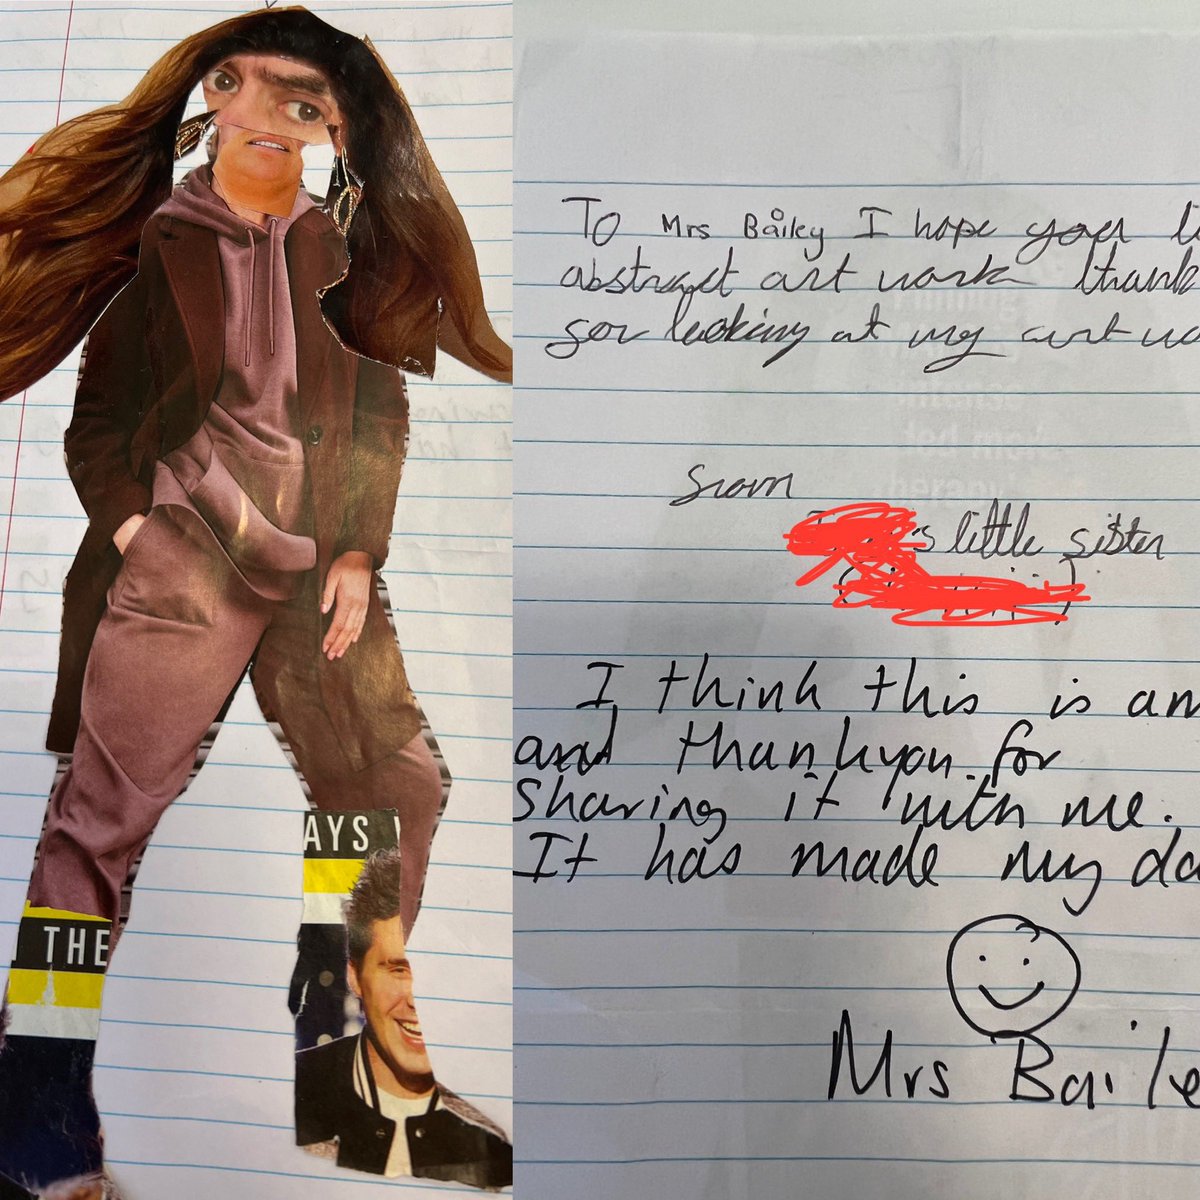 AYS
THE
To Mrs Bailey I hope you li
abstract art work thank
for looking at my art wo
from
's little sister
I think this is am
and thankyou for
sharing it with me.
It has made my da
Mrs Baile